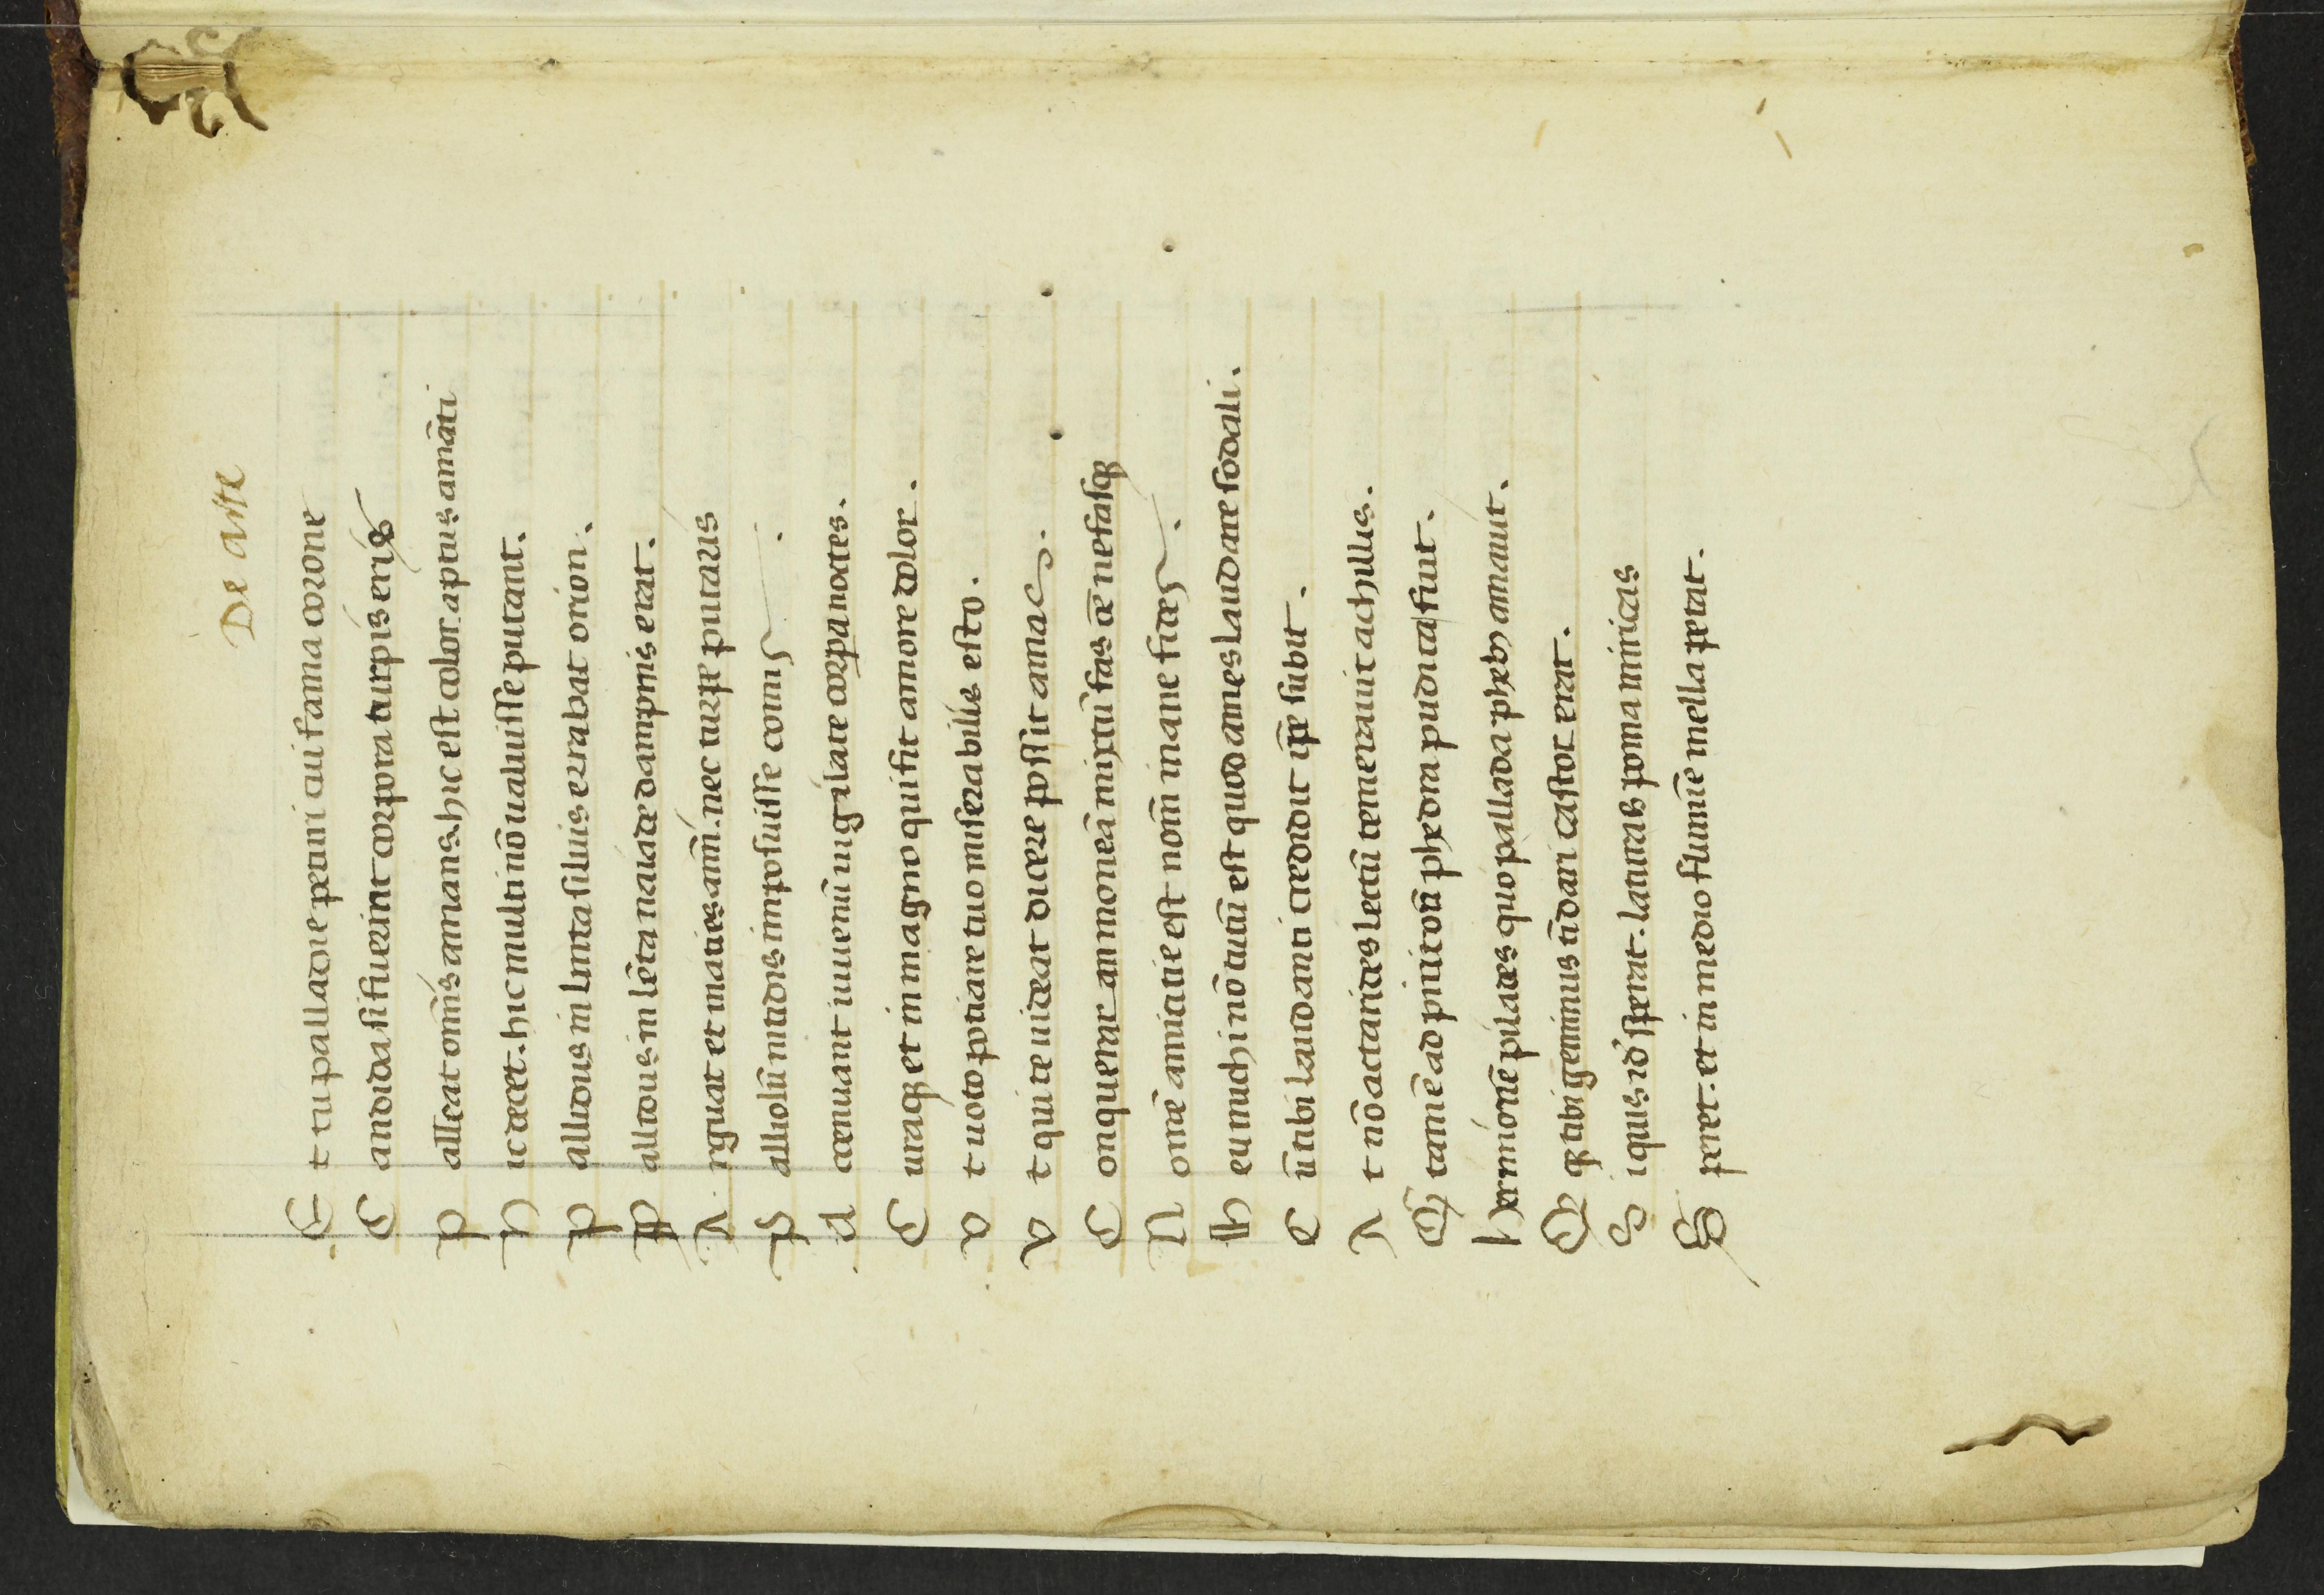 De arte
Et tu palladie petitur cui fama corone
Candida si fuerint corpora turpis eris
Palleat omĩs amans. hic est color aptus amãti
Hic decet. hic multi nõ ualuisse putant.
Pallidus in lirica siluis errabat orion.
Pallidus in lẽta naiade dampnis erat.
Arguat et maties animũ. nec turpe putaris
Palliolũ nitidis imposuisse comis.
Attenuant iuuenũ uigilate corpa noctes.
Curaqꝫ et in magno qui fit amore dolor.
Vt uoto potiare tuo miserabilis esto.
Vt qui te uideat dicere possit amas.
Conquerar an moneã mixtũ fas oẽ nefasqꝫ
Nomẽ amicitie est nomẽ inane fides.
Heu michi nõ tutũ est quod ames laudare sodali.
Cũ tibi laudanti credidit ipẽ subit.
At nõ actorides lectũ temerauit achillis.
Qꝫ tamẽ ad piritoũ phedra pudica fuit.
Hermionẽ pilades quo pallada phebꝰ amauit.
Qꝫ tibi geminus tĩdari castor erat.
Siquis idꝰ sperat. laturas poma miricas
Speret. et in medio flumĩe mella petat.